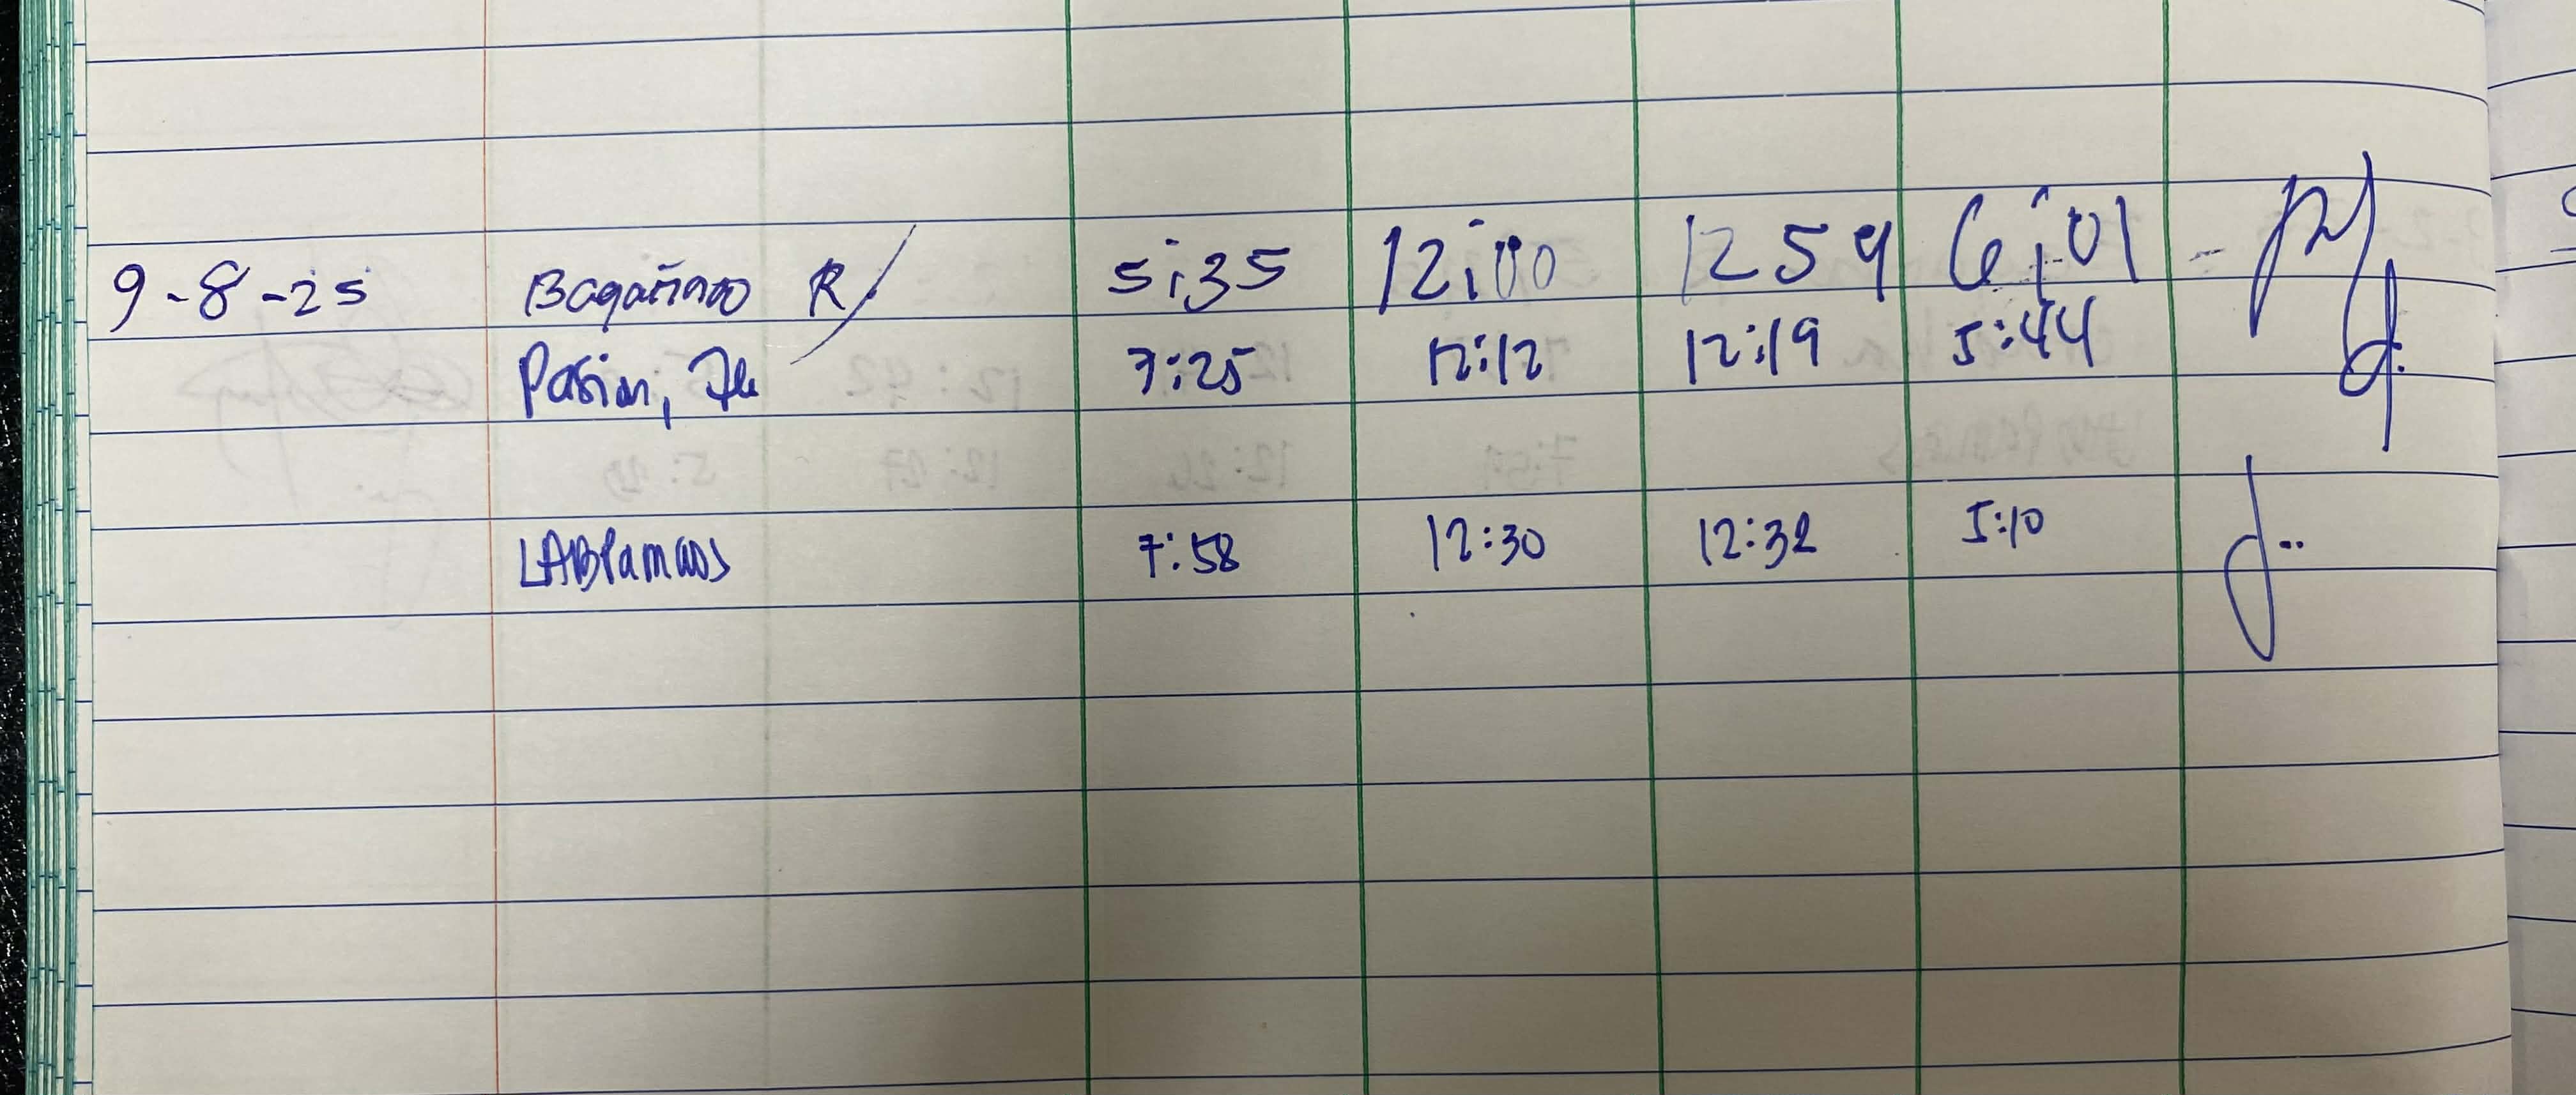 9-8-25 Bagañinao R. 5:35 12:00 1259 6:01
Pasion, 7:25 12:12 12:19 5:44
LABramos 7:58 12:30 12:32 5:10